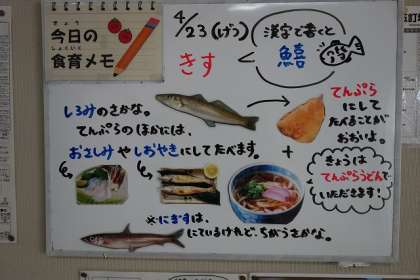 きょう
今日の
しょくいく
食育メモ
4/23(げつ)
きす
漢字で書くと
鱚
しろみのさかな。
てんぷらのほかには、
おさしみやしおやきにしてたべます。
てんぷら
にして
たべることが
おおいよ。
+
きょうは
てんぷらうどんで
いただきます!
※にぎすは、
にているけれど、ちがうさかな。